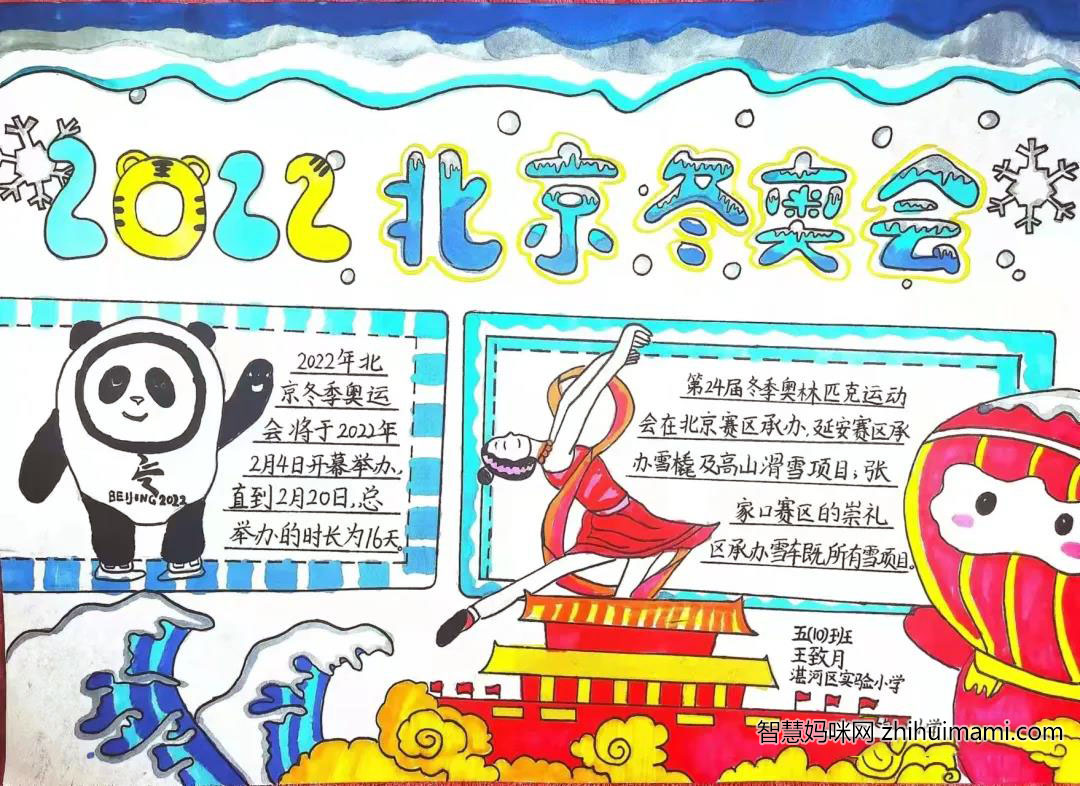 2022北京冬奥会
2022年北
京冬季奥运
会将于2022年
2月4日开幕举办,
直到2月20日,总
举办的时长为16天。
BEIJING 2022
第24届冬季奥林匹克运动
会在北京赛区承办,延安赛区承
办雪橇及高山滑雪项目;张
家口赛区的崇礼
区承办雪车既所有雪项目。
五(10)班
王致月
湛河区实验小学
智慧妈咪网 zhihuimami.com